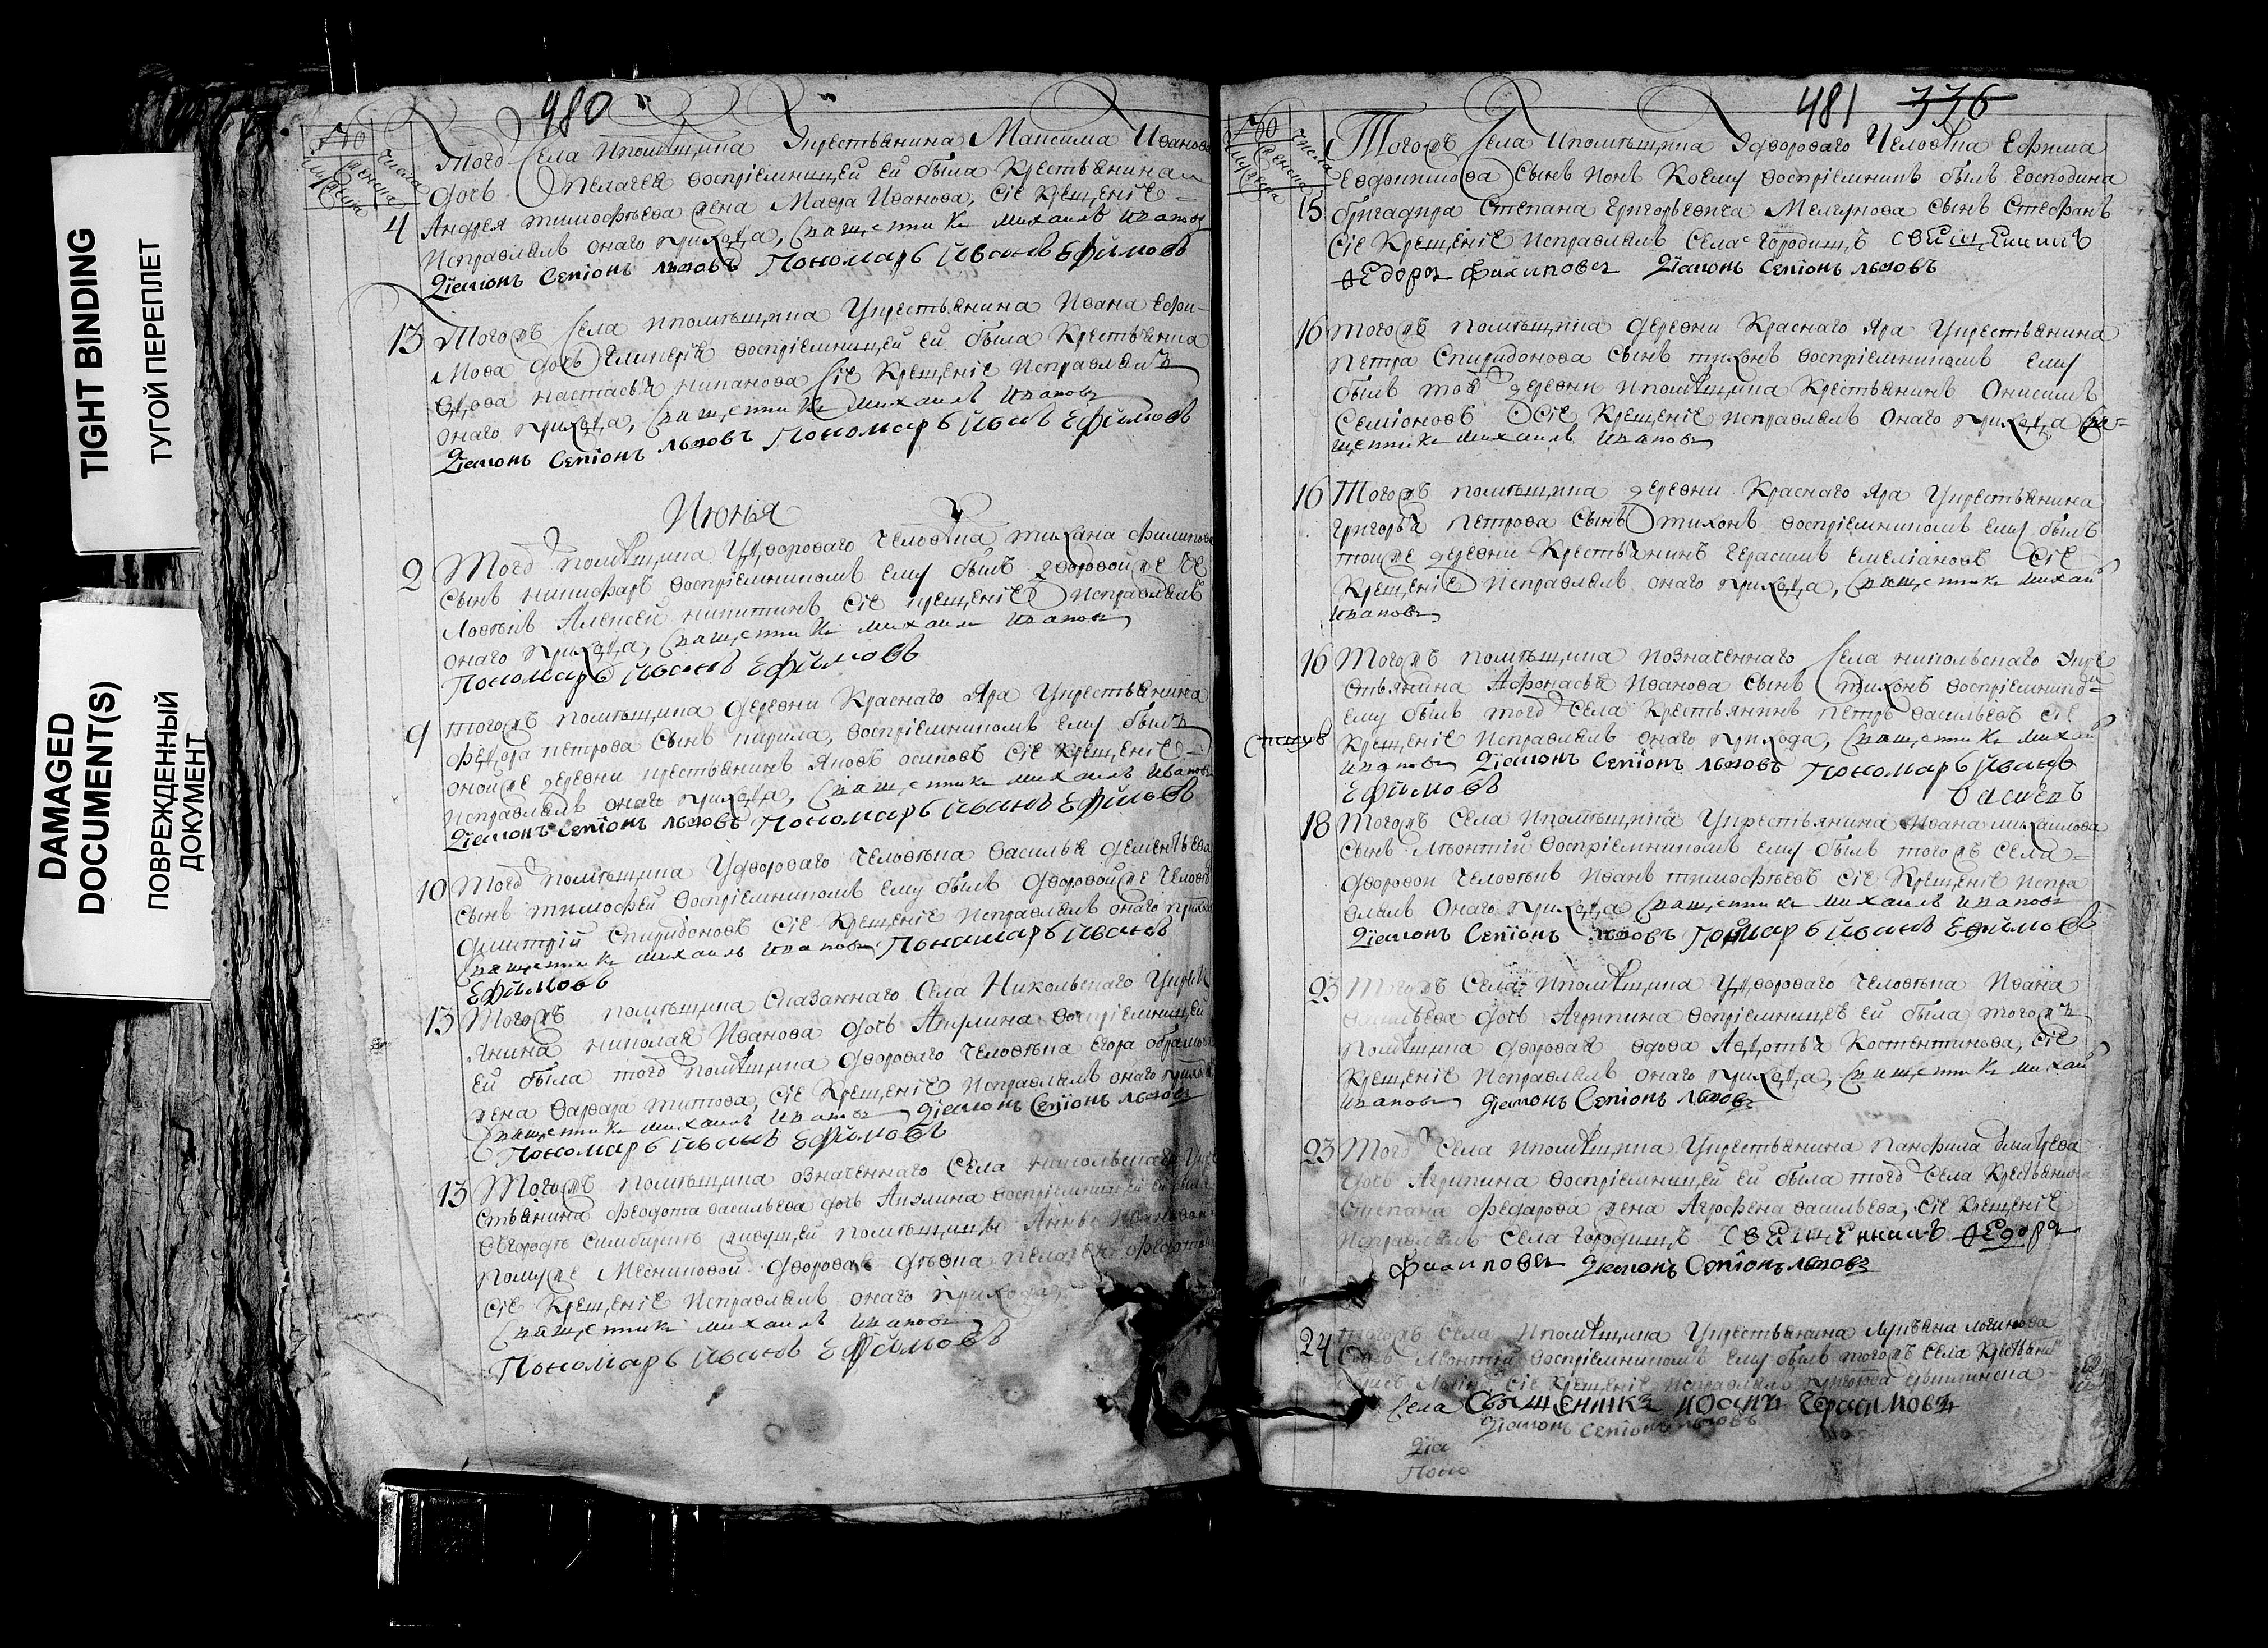 TIGHT BINDING
ТУГОЙ ПЕРЕПЛЕТ
DAMAGED
DOCUMENT(S)
ПОВРЕЖДЕННЫЙ
ДОКУМЕНТ
480
числа
4
Села и помѣщика у крестьянина Максима Иванова
дочь Пелагея восприемницей ей была крестьянина
Андрея Тимофѣева жена Мавра Иванова, сіе крещеніе
исправлялъ онаго прихода, священникъ михаилъ ивановъ
Діаконъ Семіонъ львовъ Пономарь Иванъ Ефимовъ
13 Тогожъ села и помѣщика у крестьянина Ивана Ефи-
мова дочь Гликерія восприемницей ей была крестьянка
вдова настасья сіе крещеніе исправлялъ
онаго прихода, священникъ михаилъ ивановъ
Діаконъ Семіонъ львовъ Пономарь Иванъ Ефимовъ
Июнья
2 Того помѣщика у двороваго человѣка тихана филипова
сынъ никифаръ восприемникомъ ему былъ дворовой же че
ловѣкъ Алексей никитинъ сіе крещеніе исправлялъ
онаго прихода, священникъ михаилъ ивановъ
Пономарь Иванъ Ефимовъ
9 тогожъ помѣщика деревни Краснаго Яра у крестьянина
федора петрова сынъ кирила, восприемникомъ ему былъ
оной же деревни крестьянинъ яковъ осиповъ сіе крещеніе
исправлялъ онаго прихода, священникъ михаилъ ивановъ
Діаконъ Семіонъ львовъ Пономарь Иванъ Ефимовъ
10 Того помѣщика у двороваго человѣка василья дементьева
сынъ тимофей восприемникомъ ему былъ дворовой же человѣкъ
дмитрій спиридоновъ сіе крещеніе исправлялъ онаго прихода
священникъ михаилъ ивановъ Пономарь Иванъ
Ефимовъ
13 Тогожъ помѣщика сказаннаго села Никольскаго у крест
янина николая Иванова дочь Акулина восприемницей
ей была того помѣщика двороваго человѣка Егора
жена варвара титова, сіе крещеніе исправлялъ онаго прихода
священникъ михаилъ ивановъ Діаконъ Семіонъ львовъ
Пономарь Иванъ Ефимовъ
13 Тогожъ помѣщика означеннаго села никольскаго у кре
стьянина феодота васильева дочь Акулина восприемницей ей была
живущей помѣщицы Анны Ивановой
дворовая дѣвка пелагея
сіе крещеніе исправлялъ онаго прихода
священникъ михаилъ ивановъ
Пономарь Иванъ Ефимовъ
481 336
числа
15
Тогожъ села и помѣщика у двороваго человѣка Ефима
Евдокимова сынъ коему восприемникъ былъ господина
бригадира Степана Григорьевича Мелгунова сынъ Стефанъ
сіе крещеніе исправлялъ села городищъ священникъ
Федоръ Филиповъ Діаконъ Семіонъ львовъ
16 тогожъ помѣщика деревни Краснаго Яра у крестьянина
петра Спиридонова сынъ тихонъ восприемникомъ ему
былъ той деревни и помѣщика крестьянинъ Онисимъ
Семіоновъ сіе крещеніе исправлялъ онаго прихода свя-
щенникъ михаилъ ивановъ
16 Тогожъ помѣщика деревни Краснаго Яра у крестьянина
Григорья петрова сынъ тихонъ восприемникомъ ему былъ
той же деревни крестьянинъ герасимъ емеліановъ сіе
крещеніе исправлялъ онаго прихода, священникъ михаи
ивановъ
16 Тогожъ помѣщика села никольскаго у кре
стьянина Афонасья Иванова сынъ тихонъ восприемнико
ему былъ того села крестьянинъ петръ васильевъ сіе
крещеніе исправлялъ онаго прихода, священникъ михаи
ивановъ Діаконъ Семіонъ львовъ Пономарь Иванъ
Ефимовъ
18 Тогожъ села и помѣщика у крестьянина ивана михаилова
сынъ Леонтій восприемникомъ ему былъ тогожъ села
дворовои человѣкъ Иванъ тимофѣевъ сіе крещеніе испра
влялъ онаго прихода священникъ михаилъ ивановъ
Діаконъ Семіонъ львовъ Пономарь Иванъ Ефимовъ
23 Тогожъ села и помѣщика у двороваго человѣка Ивана
дочь Агрипина восприемницей ей была тогожъ
помѣщика дворовая вдова Авдотья Костентинова, сіе
крещеніе исправлялъ онаго прихода, священникъ михаи
ивановъ діаконъ Семіонъ львовъ
23 Того села и помѣщика у крестьянина панфила дмитрева
дочь Агрипина восприемницей ей была того села крестьянина
степана федарова жена Агрофена васильева, сіе крещеніе
исправлялъ села городищъ священникъ Федоръ
Филиповъ Діаконъ Семіонъ львовъ
24 тогожъ села и помѣщика у крестьянина лукьяна логинова
сынъ Леонтій восприемникомъ ему былъ тогожъ села крестьянинъ
сіе крещеніе исправлялъ
села священникъ Иоаннъ Герасимовъ
Діаконъ Семіонъ львовъ
Діа
Поно